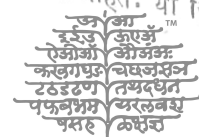 अ आ TM
इईउ ऊ
अंअः
कखगघङ चछजझञ
टठडढण तथदधन
पफबभम यरलवश
षसह ळक्षज्ञ